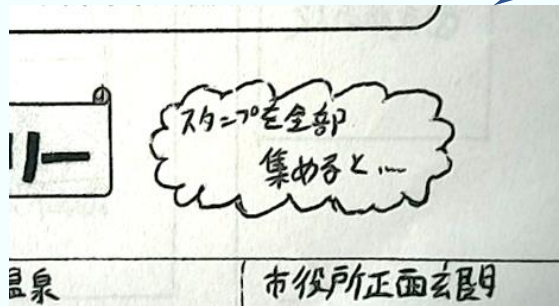 スタンプを全部
集めると…
リー
温泉
市役所正面玄関